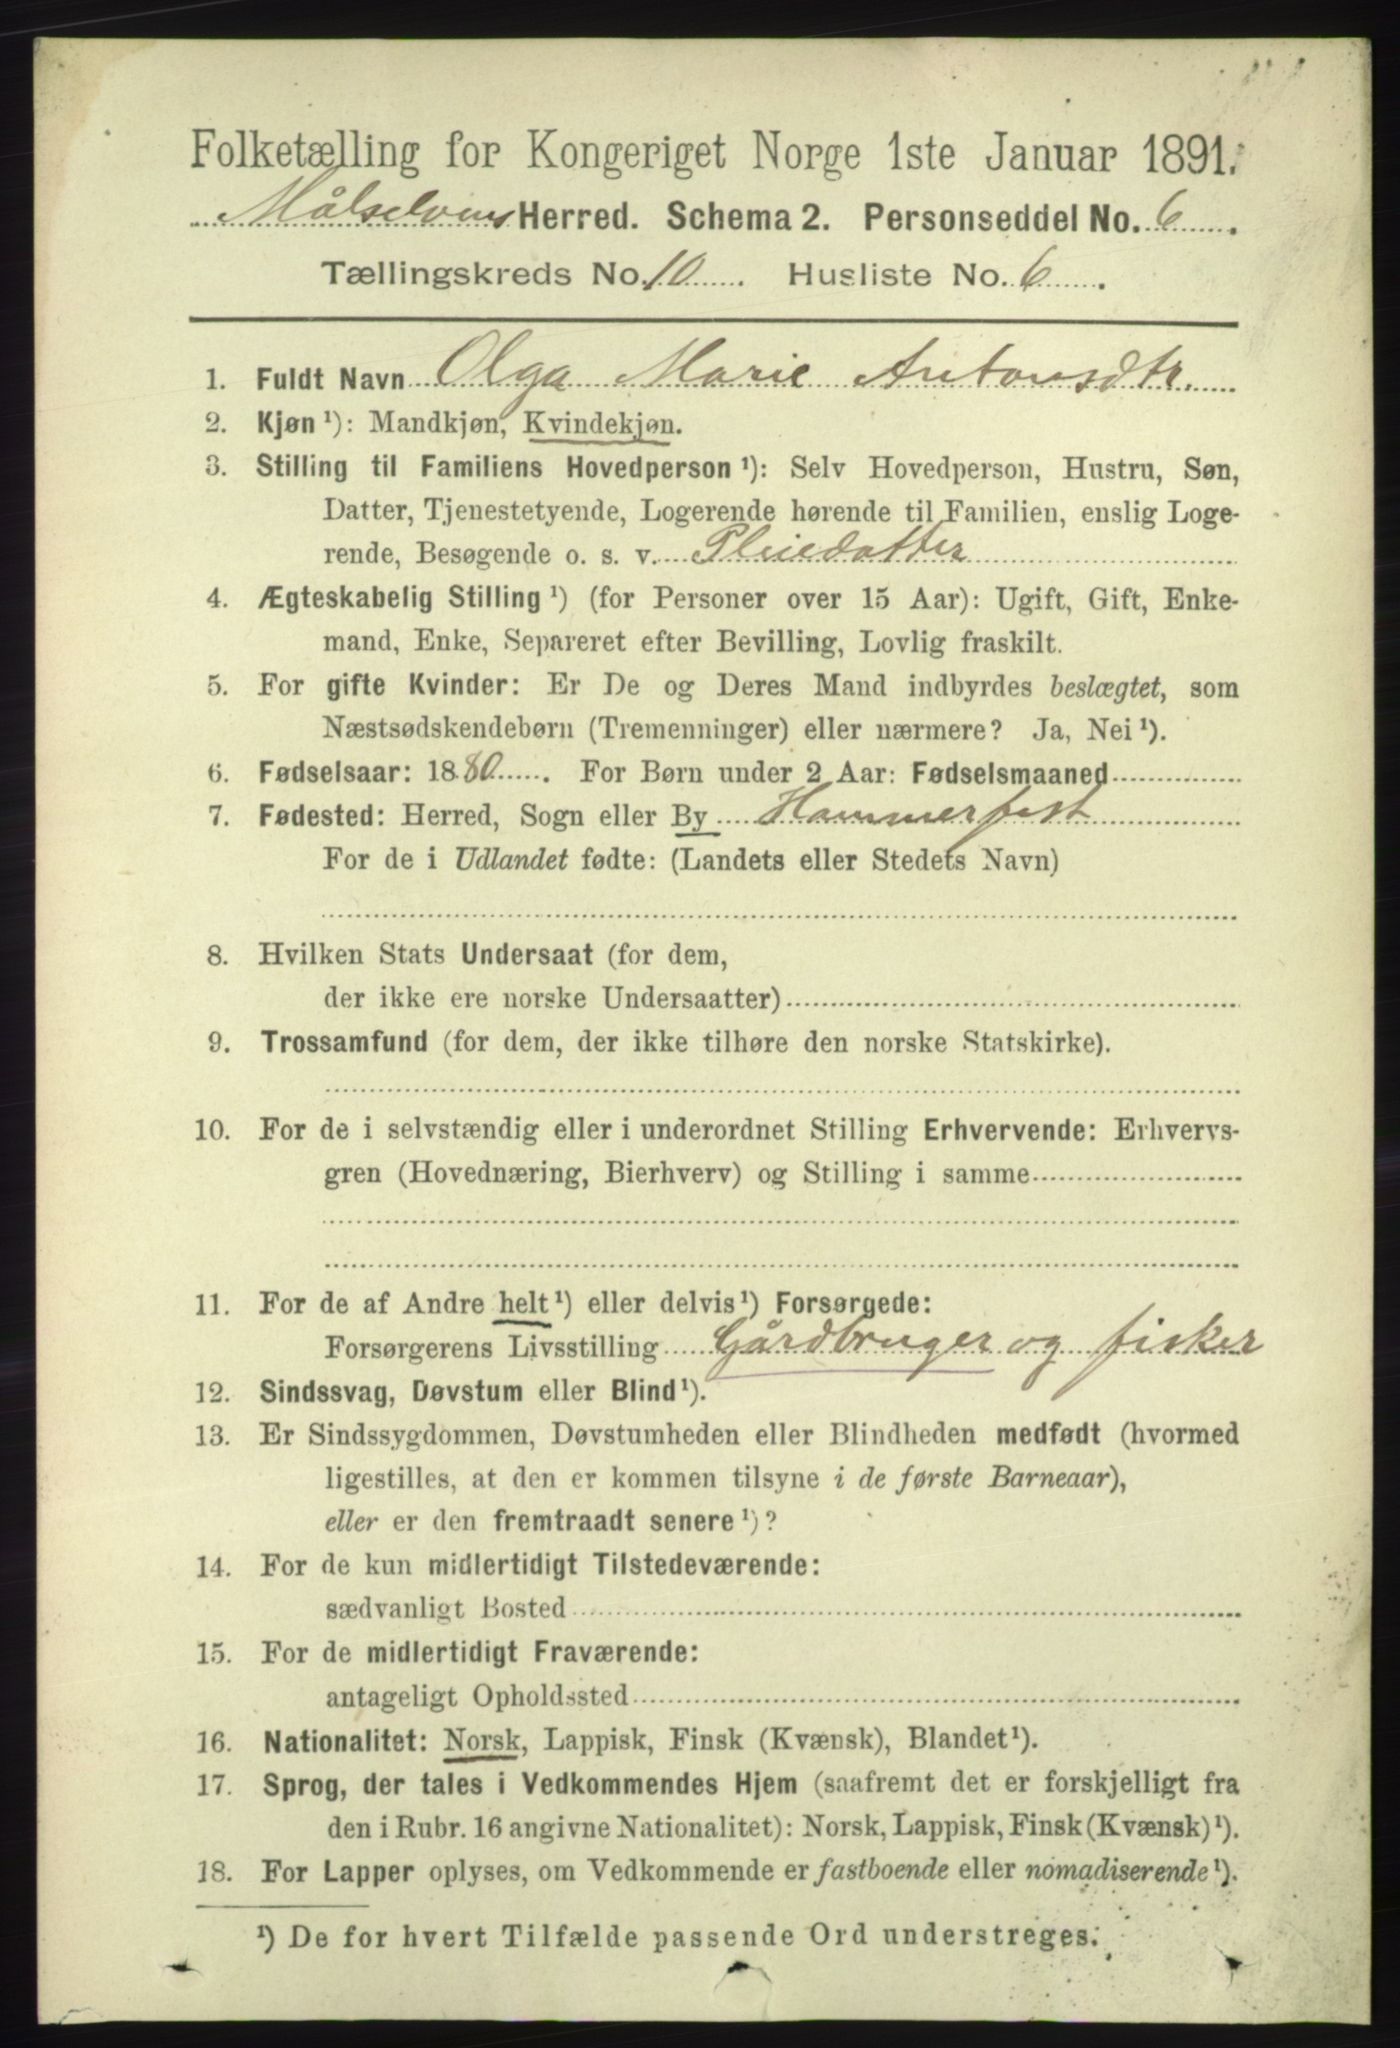 Folketælling for Kongeriget Norge 1ste Januar 1891.
Målselvens Herred. Schema 2. Personseddel No. 6
Tællingskreds No. 10 Husliste No. 6
1. Fuldt Navn Olga Marie Antonsdtr.
2. Kjøn ¹): Mandkjøn, Kvindekjøn.
3. Stilling til Familiens Hovedperson ¹): Selv Hovedperson, Hustru, Søn,
Datter, Tjenestetyende, Logerende hørende til Familien, enslig Loge-
rende, Besøgende o. s. v. Pleiedatter
4. Ægteskabelig Stilling ¹) (for Personer over 15 Aar): Ugift, Gift, Enke-
mand, Enke, Separeret efter Bevilling, Lovlig fraskilt.
5. For gifte Kvinder: Er De og Deres Mand indbyrdes beslægtet, som
Næstsødskendebørn (Tremenninger) eller nærmere? Ja, Nei ¹).
6. Fødselsaar: 1880. For Børn under 2 Aar: Fødselsmaaned
7. Fødested: Herred, Sogn eller By Hammerfest
For de i Udlandet fødte: (Landets eller Stedets Navn)
8. Hvilken Stats Undersaat (for dem,
der ikke ere norske Undersaatter)
9. Trossamfund (for dem, der ikke tilhøre den norske Statskirke).
10. For de i selvstændig eller i underordnet Stilling Erhvervende: Erhvervs-
gren (Hovednæring, Bierhverv) og Stilling i samme
11. For de af Andre helt ¹) eller delvis ¹) Forsørgede:
Forsørgerens Livsstilling Gårdbruger og fisker
12. Sindssvag, Døvstum eller Blind ¹).
13. Er Sindssygdommen, Døvstumheden eller Blindheden medfødt (hvormed
ligestilles, at den er kommen tilsyne i de første Barneaar),
eller er den fremtraadt senere ¹)?
14. For de kun midlertidigt Tilstedeværende:
sædvanligt Bosted
15. For de midlertidigt Fraværende:
antageligt Opholdssted
16. Nationalitet: Norsk, Lappisk, Finsk (Kvænsk), Blandet ¹).
17. Sprog, der tales i Vedkommendes Hjem (saafremt det er forskjelligt fra
den i Rubr. 16 angivne Nationalitet): Norsk, Lappisk, Finsk (Kvænsk) ¹).
18. For Lapper oplyses, om Vedkommende er fastboende eller nomadiserende ¹).
¹) De for hvert Tilfælde passende Ord understreges.